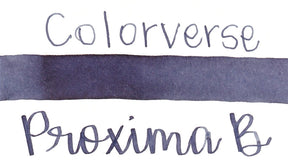 Colorverse
Proxima B